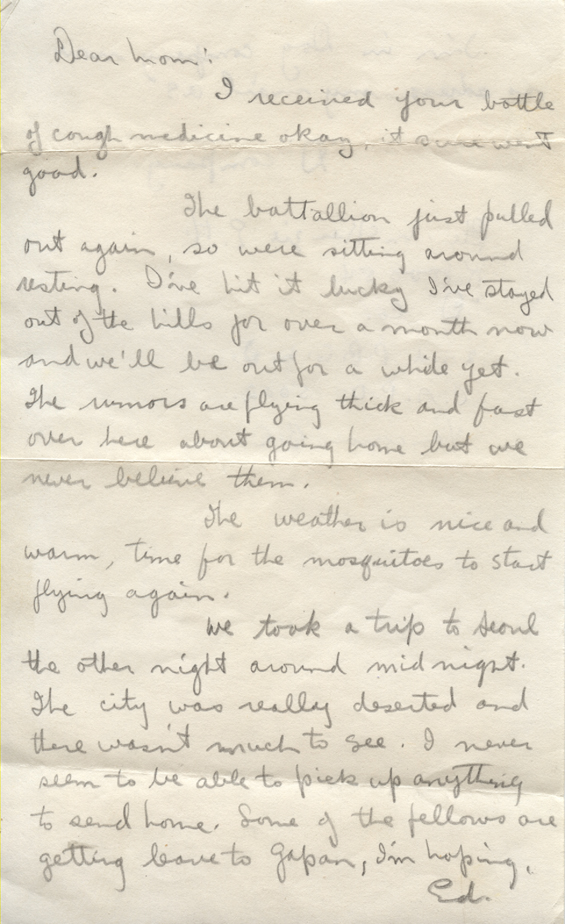 Dear Mom:
I received your bottle
of cough medicine okay, it sure went
good.
The battallion just pulled
out again, so were sitting around
resting. I've hit it lucky I've stayed
out of the hills for over a month now
and we'll be out for a while yet.
The rumors are flying thick and fast
over here about going home but we
never believe them.
The weather is nice and
warm, time for the mosquitoes to start
flying again.
We took a trip to Seoul
the other night around midnight.
The city was really deserted and
there wasn't much to see. I never
seem to be able to pick up anything
to send home. Some of the fellows are
getting leave to Japan, I'm hoping.
Ed.